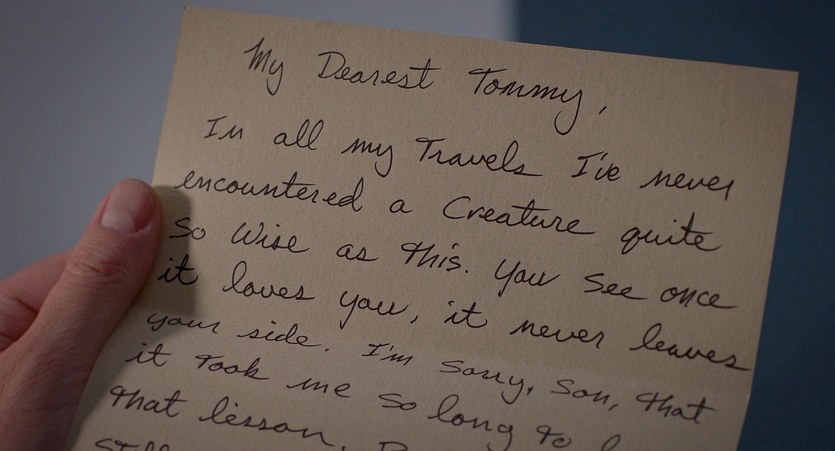 My Dearest Tommy,
In all my Travels I've never
encountered a Creature quite
so Wise as this. You see once
it loves you, it never leaves
your side. I'm sorry, son, that
it took me so long to
that lesson.